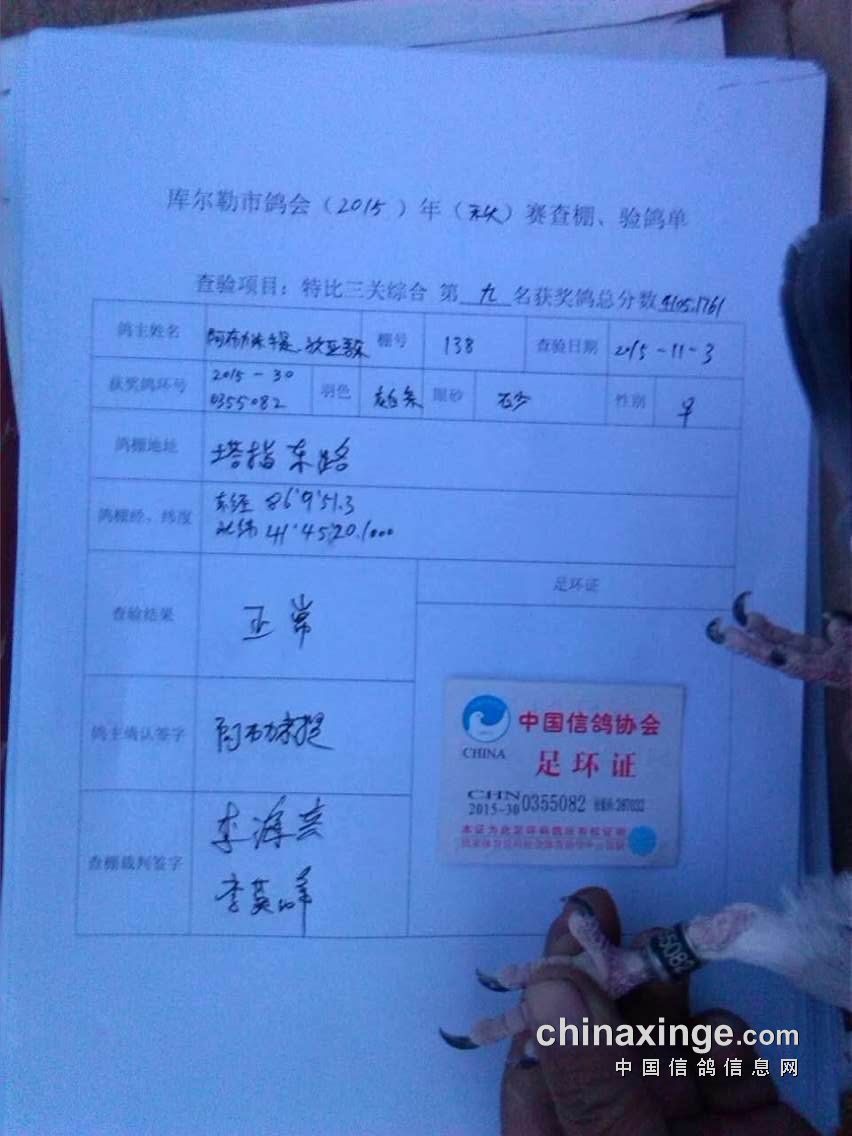 库尔勒市鸽会（2015）年（秋）赛查棚、验鸽单
查验项目：特比三关综合 第 九 名获奖鸽总分数4105.1761
鸽主姓名 棚号 138 查验日期 2015-11-3
获奖鸽环号 2015-30 0355082 羽色 眼砂 性别 ♀
鸽棚地址 塔指东路
鸽棚经、纬度 东经 86°9'51.3
北纬 41°45'20.1000
查验结果 正常
足环证
鸽主确认签字
查棚裁判签字
中国信鸽协会
CHINA
足环证
CHN
2015-30 0355082 387032
本证为此足环码鸽所有权证明
35082
chinaxinge.com
中国信鸽信息网